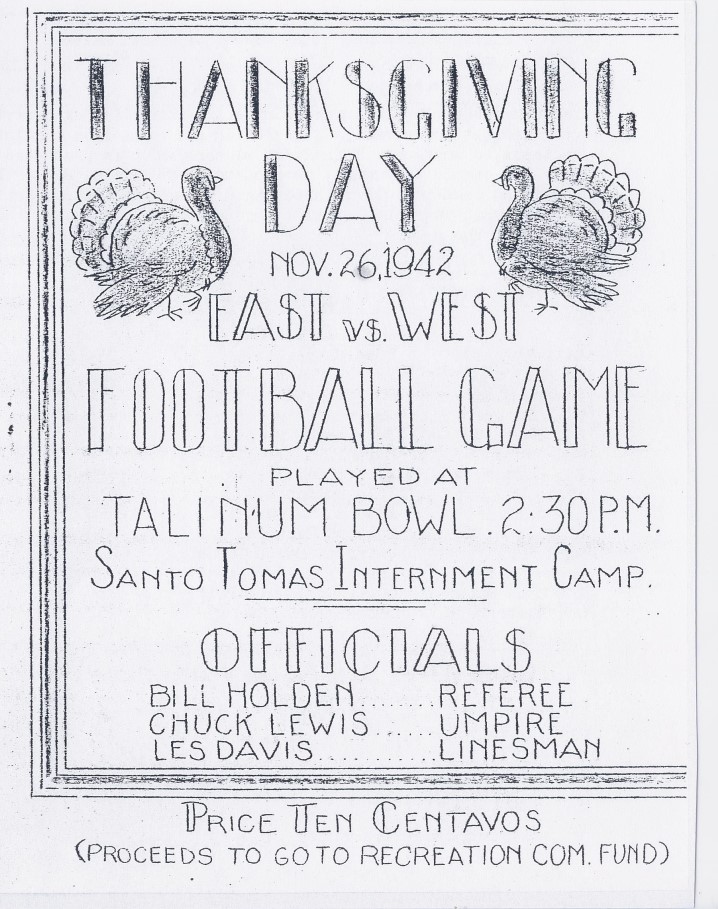 THANKSGIVING
DAY
NOV. 26, 1942
EAST VS. WEST
FOOTBALL GAME
PLAYED AT
TALINUM BOWL 2:30 P.M.
SANTO TOMAS INTERNMENT CAMP.
OFFICIALS
BILL HOLDEN........REFEREE
CHUCK LEWIS......UMPIRE
LES DAVIS...........LINESMAN
PRICE TEN CENTAVOS
(PROCEEDS TO GO TO RECREATION COM. FUND)